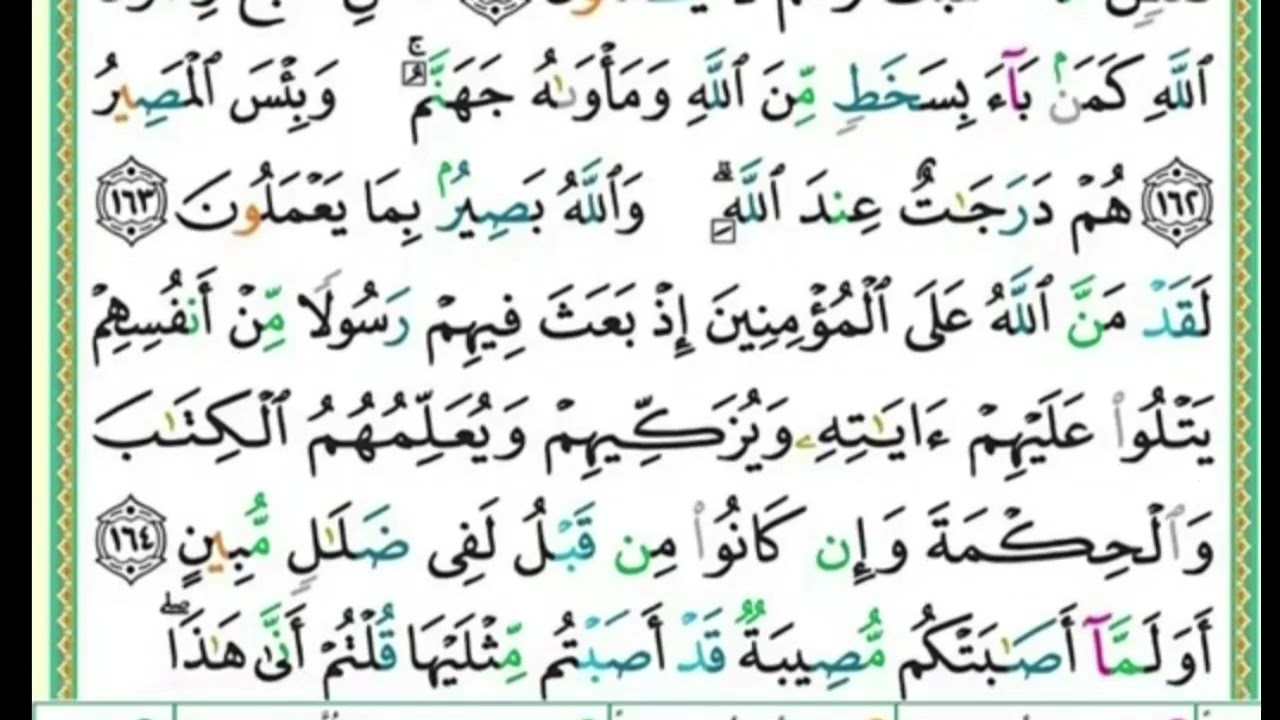 ٱللَّهِ كَمَنۢ بَآءَ بِسَخَطٍ مِّنَ ٱللَّهِ وَمَأْوَىٰهُ جَهَنَّمُ ۚ وَبِئْسَ ٱلْمَصِيرُ
١٦٢ هُمْ دَرَجَـٰتٌ عِندَ ٱللَّهِ ۗ وَٱللَّهُ بَصِيرٌۢ بِمَا يَعْمَلُونَ ١٦٣
لَقَدْ مَنَّ ٱللَّهُ عَلَى ٱلْمُؤْمِنِينَ إِذْ بَعَثَ فِيهِمْ رَسُولًا مِّنْ أَنفُسِهِمْ
يَتْلُوا۟ عَلَيْهِمْ ءَايَـٰتِهِۦ وَيُزَكِّيهِمْ وَيُعَلِّمُهُمُ ٱلْكِتَـٰبَ
وَٱلْحِكْمَةَ وَإِن كَانُوا۟ مِن قَبْلُ لَفِى ضَلَـٰلٍ مُّبِينٍ ١٦٤
أَوَلَمَّآ أَصَـٰبَتْكُم مُّصِيبَةٌ قَدْ أَصَبْتُم مِّثْلَيْهَا قُلْتُمْ أَنَّىٰ هَـٰذَا ۖ